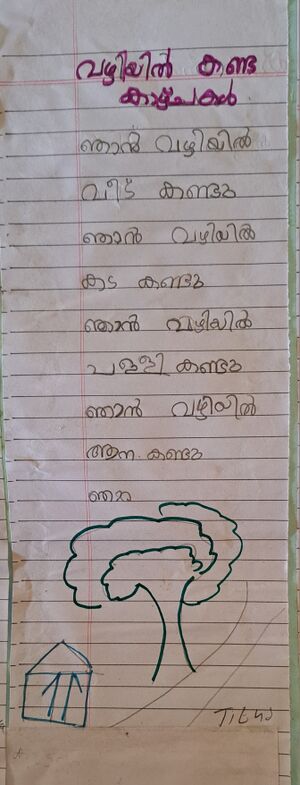 വഴിയിൽ കണ്ട
കാഴ്ചകൾ
ഞാൻ വഴിയിൽ
വീട് കണ്ടു
ഞാൻ വഴിയിൽ
കട കണ്ടു
ഞാൻ വഴിയിൽ
പള്ളി കണ്ടു
ഞാൻ വഴിയിൽ
ആന കണ്ടു
ഞാ